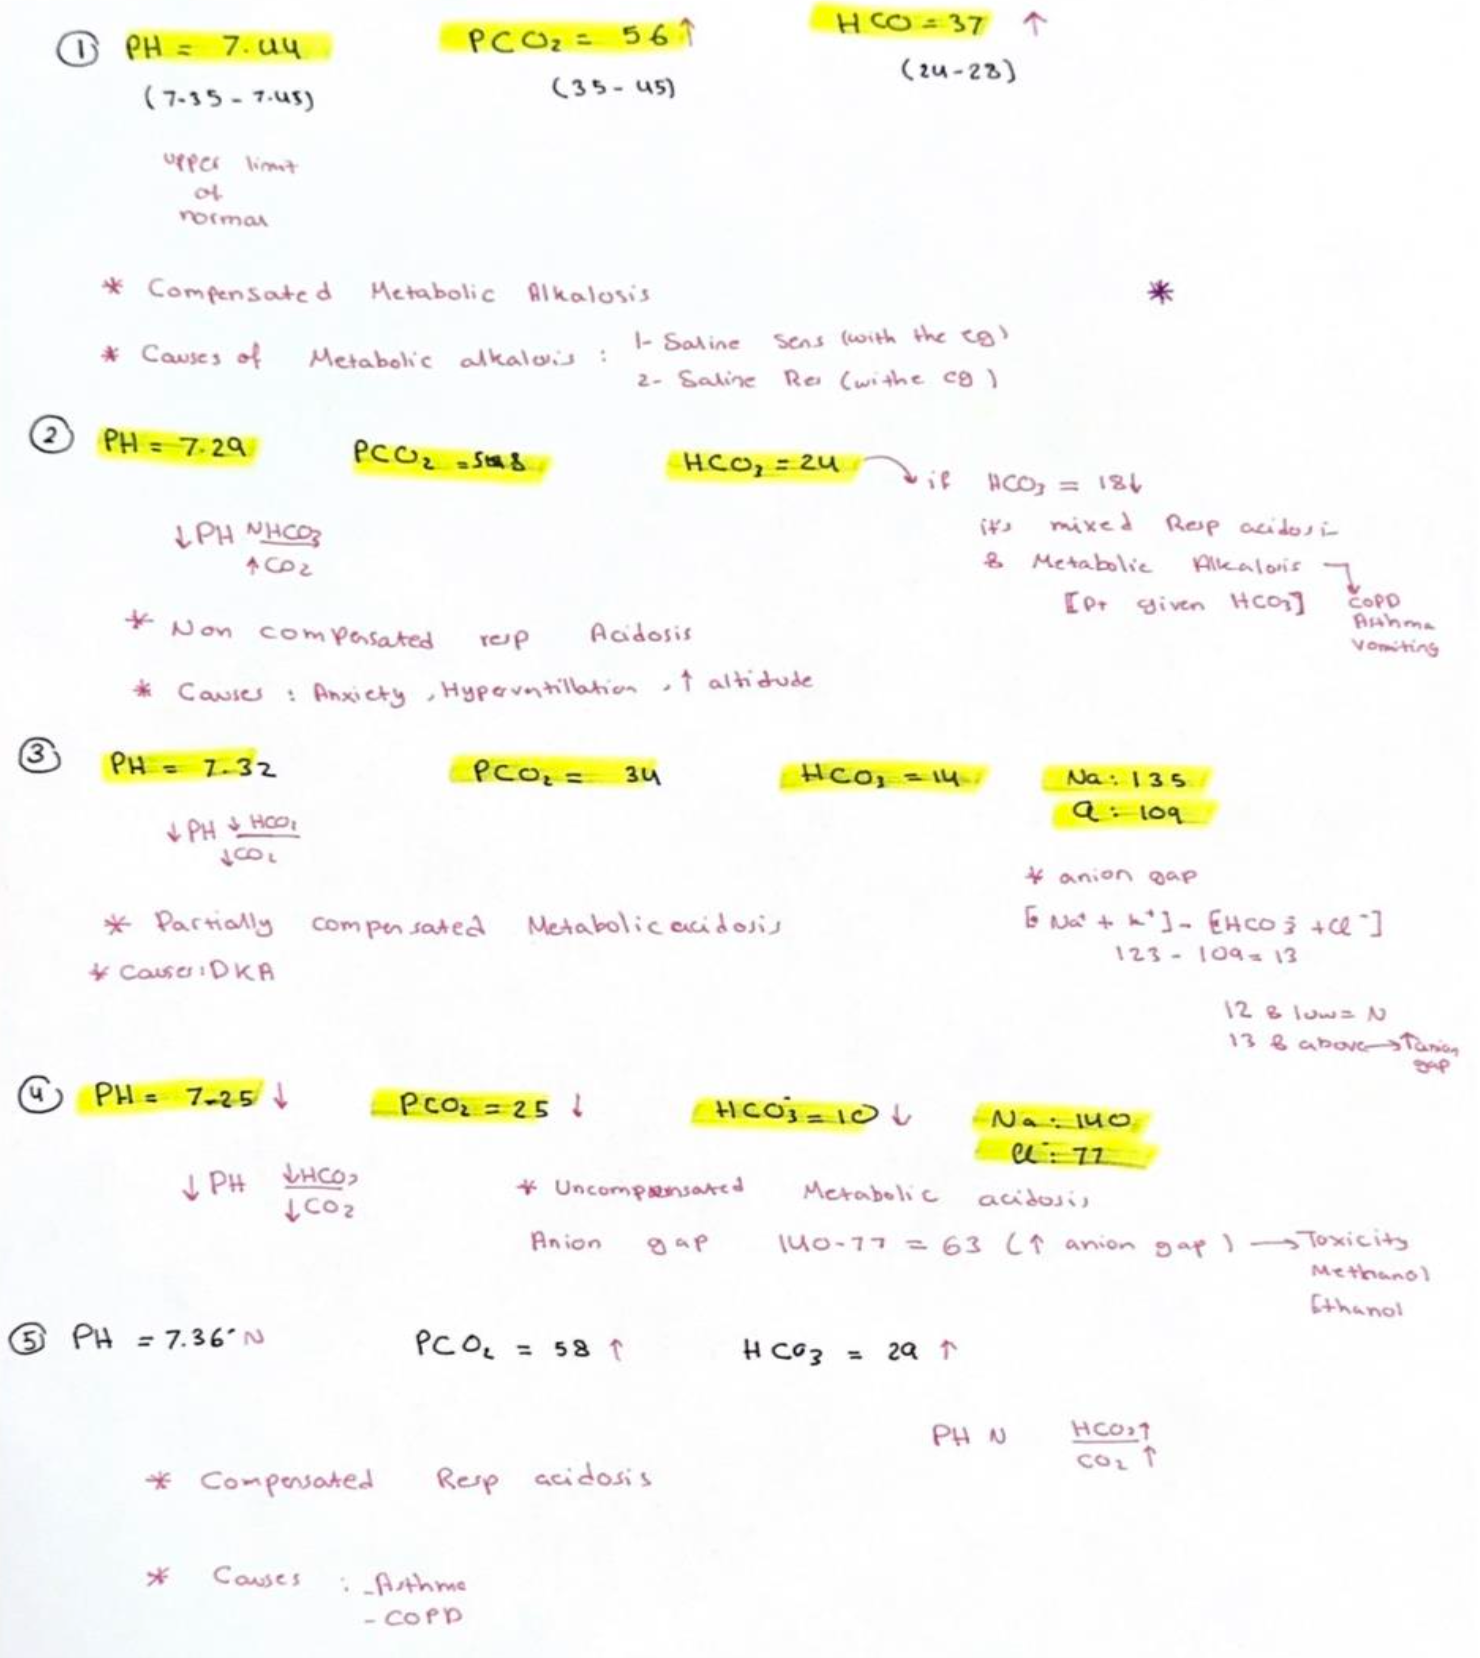 ① PH = 7.44 PCO₂ = 56 ↑ HCO = 37 ↑
(7.35 - 7.45) (35 - 45) (24-28)
upper limit
of
normal
* Compensated Metabolic Alkalosis *
* Causes of Metabolic alkalosis : 1- Saline Sens (with the eg)
2- Saline Res (withe eg)
② PH = 7.29 PCO₂ = HCO₃ = 24 → if HCO₃ = 18↓
↓PH NHCO3 / ↑CO2
it's mixed Resp acidosi
& Metabolic Alkalosis → COPD
[Pt given HCO3] Asthma
Vomiting
* Non compensated resp Acidosis
* Causes : Anxiety, Hyperventillation, ↑ altidude
③ PH = 7.32 PCO₂ = 34 HCO₃ = 14 Na : 135
Cl : 109
↓PH ↓HCO₃ / ↓CO₂
* anion gap
* Partially compensated Metabolic acidosis
[Na⁺ + K⁺] - [HCO3⁻ + Cl⁻]
123 - 109 = 13
* Causes : DKA
12 & low = N
13 & above → ↑ anion
gap
④ PH = 7.25 ↓ PCO₂ = 25 ↓ HCO3⁻ = 10 ↓ Na : 140
Cl⁻ : 77
↓ PH ↓HCO₃ / ↓CO2
* Uncompensated Metabolic acidosis
Anion gap 140-77 = 63 (↑ anion gap) → Toxicity
Methanol
Ethanol
⑤ PH = 7.36 N PCO₂ = 58 ↑ HCO3 = 29 ↑
PH N HCO₃↑ / CO₂ ↑
* Compensated Resp acidosis
* Causes : - Asthma
- COPD